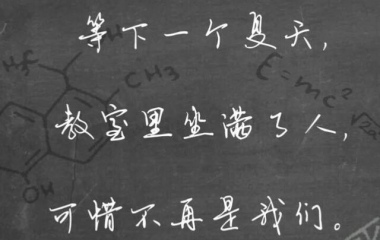 等下一个夏天，
教室里坐满了人，
可惜不再是我们。
CH₃
E=mc²
OH